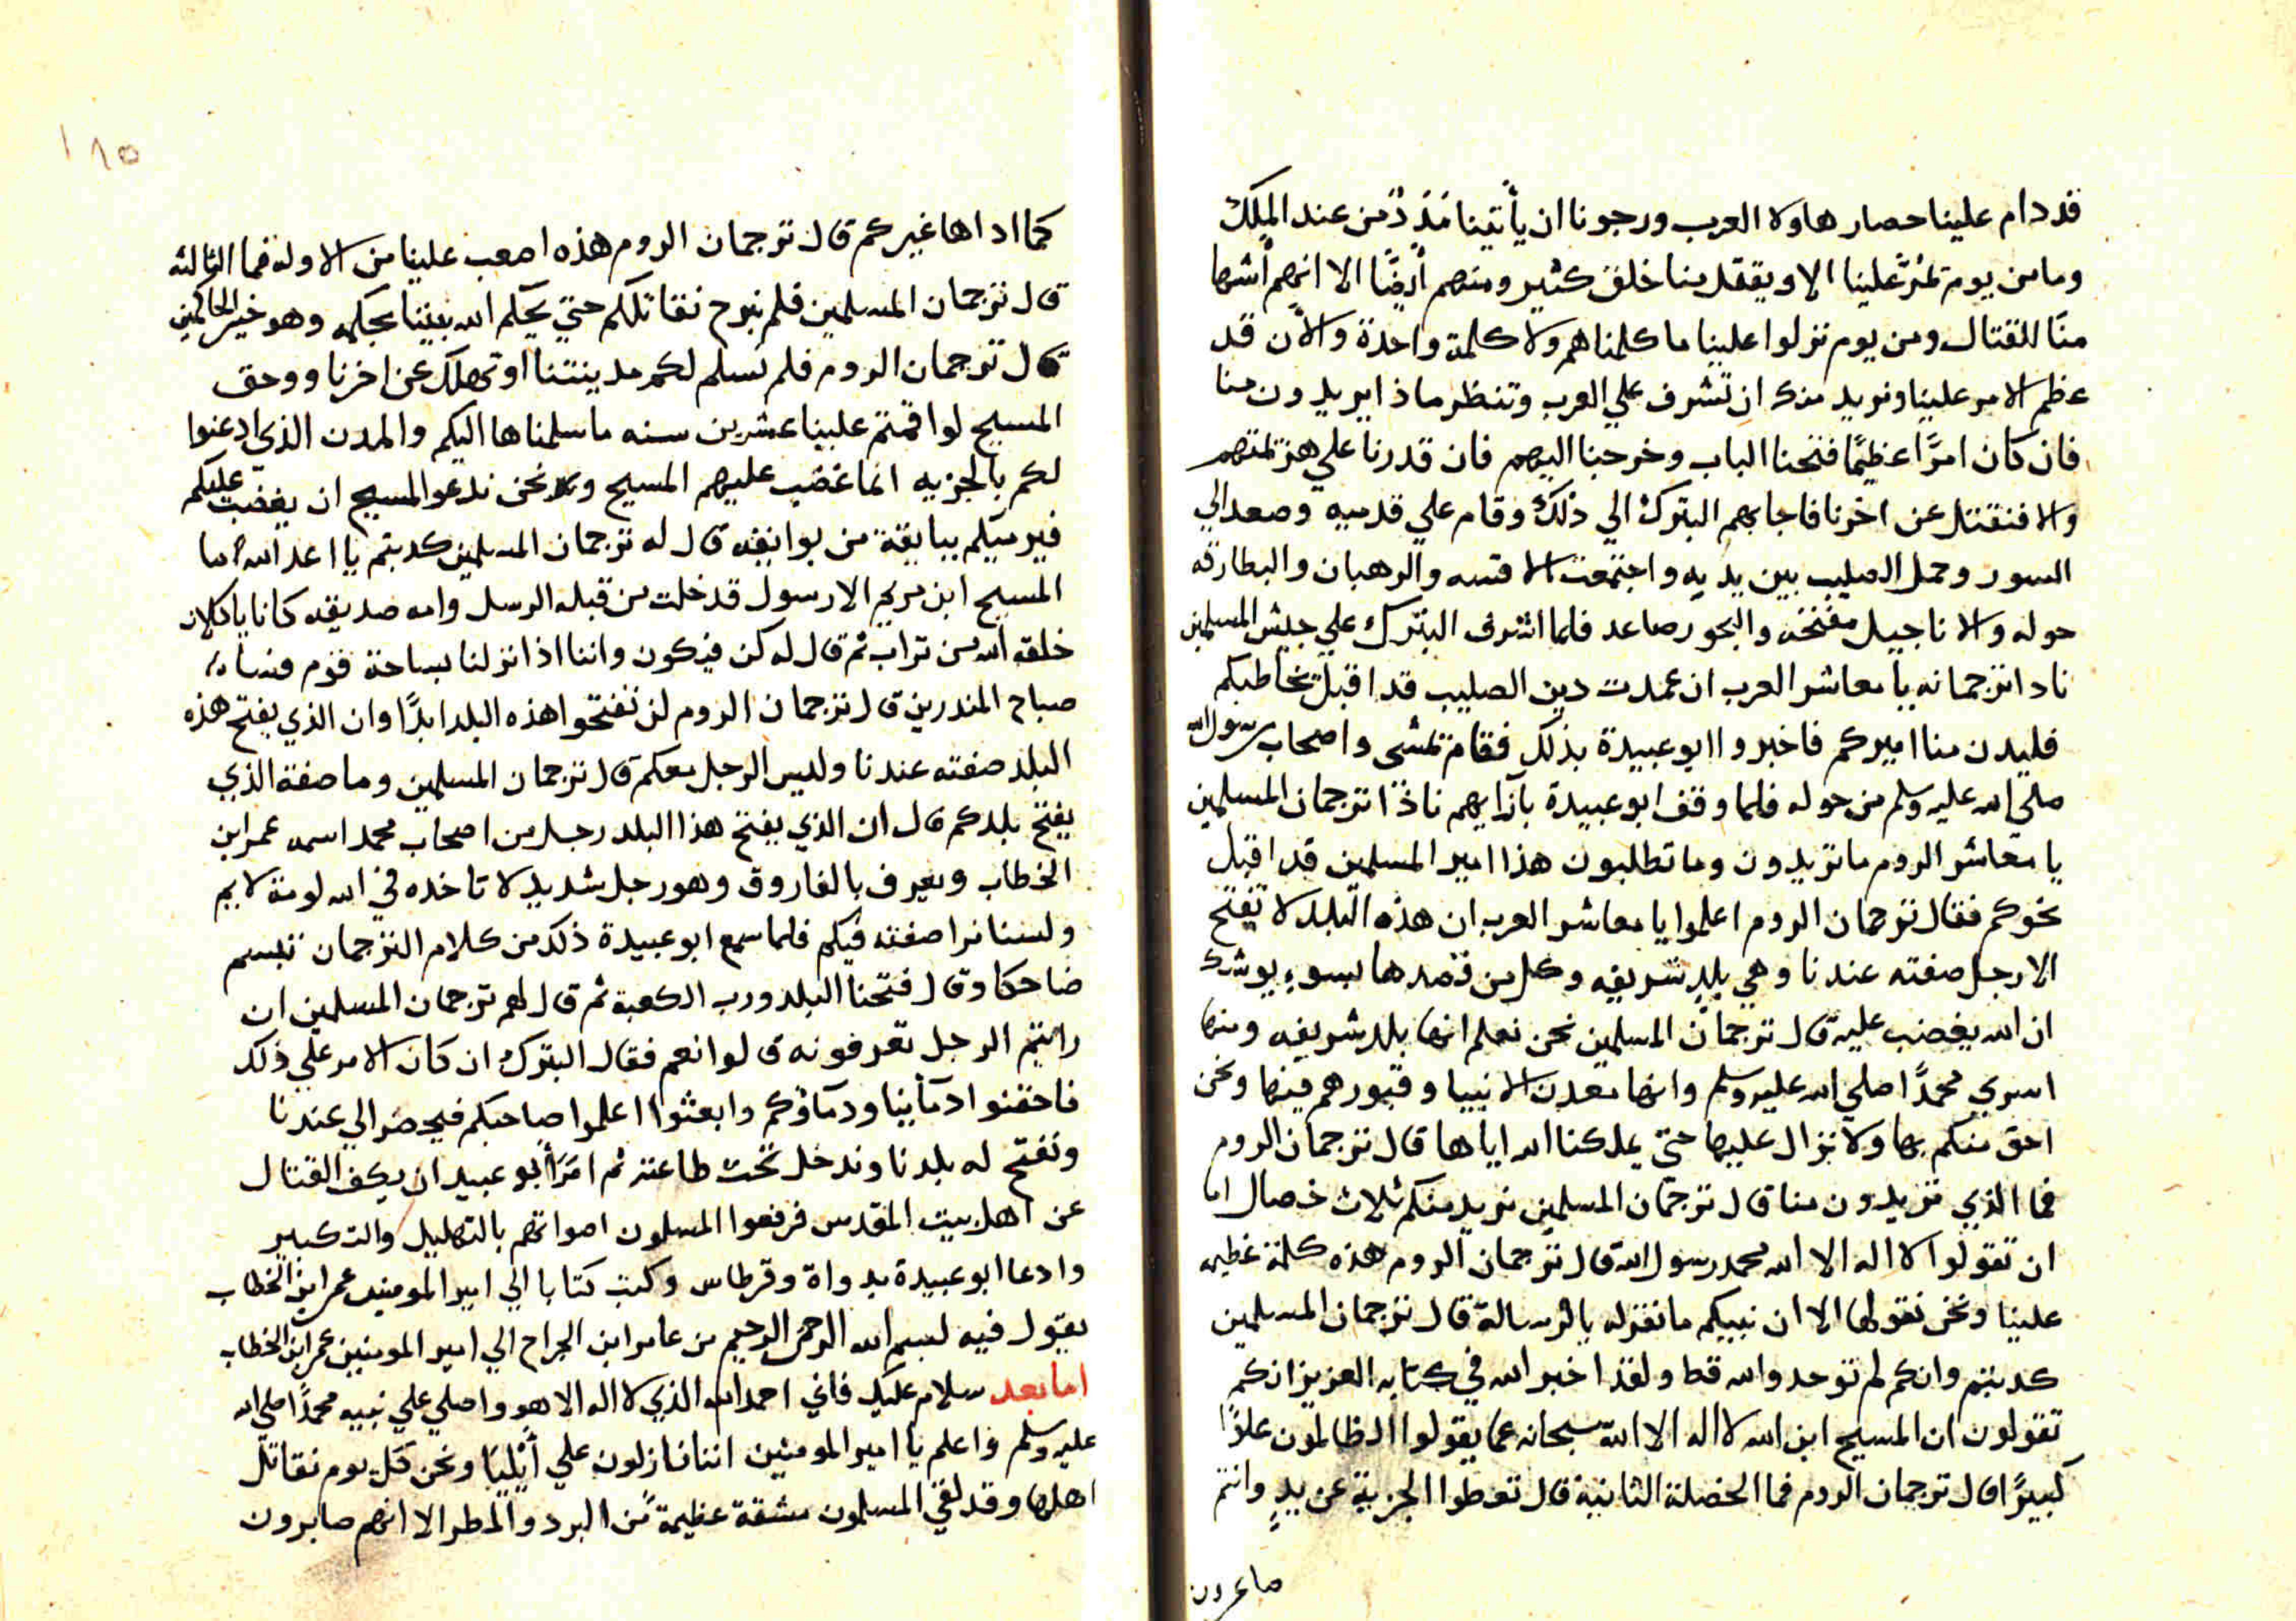 قد دام علينا حصار هاولا العرب ورجونا ان يأتينا مَدَدٌ من عند الملك
وما من يوم يمرّ علينا الا ويقتل منا خلق كثير ومنهم أيضًا الا انهم أشها
منّا للقتال ومن يوم نزلوا علينا ما كلمناهم ولا كلمة واحدة والأن قد
عظم الامر علينا ونريد منك ان تشرف علي العرب وتنظر ماذا يريدون منا
فان كان امرًا عظيمًا فتحنا الباب وخرجنا اليهم فان قدرنا علي هزيمتهم
والا فنقتل عن اخرنا فاجابهم البترك الي ذلك وقام علي قدميه وصعد الي
السور وحمل الصليب بين يديه واجتمعت الاقسه والرهبان والبطارقه
حوله والاناجيل مفتحه والبخور صاعد فلما اشرف البترك علي جيش المسلمين
نادا ترجمانه يا معاشر العرب ان عمدت دين الصليب قد اقبل يخاطبكم
فليدن منا اميركم فاخبروا ابو عبيدة بذلك فقام يمشى واصحاب رسول الله
صلي الله عليه وسلم من حوله فلما وقف ابو عبيدة بآزايهم نادا ترجمان المسلمين
يا معاشر الروم ما تريدون وما تطلبون هذا امير المسلمين قد اقبل
نحوكم فقال ترجمان الروم اعلموا يا معاشر العرب ان هذه البلد لا يفتح
الا رجل صفته عندنا وهي بلد شريفه وكل من قصدها بسوء يوشك
ان الله يغضب عليه قال ترجمان المسلمين نحن نعلم انها بلد شريفه ومنها
اسري محمدًا صلي الله عليه وسلم وانها معدن الانبيا وقبورهم فيها ونحن
احق منكم بها ولا نزال عليها حتي يملكنا الله اياها قال ترجمان الروم
فما الذي تريدون منا قال ترجمان المسلمين نريد منكم ثلاث خصال اما
ان تقولوا لا اله الا الله محمد رسول الله قال ترجمان الروم هذه كلمة عظيمه
علينا ونحن نقولها الا ان نبيكم ما نقر له بالرسالة قال ترجمان المسلمين
كدبتم وانكم لم توحدوا الله قط ولقد اخبر الله في كتابه العزيز انكم
تقولون ان المسيح ابن الله لا اله الا الله سبحانه عما يقولوا الظالمون علوًا
كبيرًا قال ترجمان الروم فما الخصلة الثانية قال تعطوا الجزية عن يدٍ وانتم
صاغرون
١٨٥
كما اداها غيركم قال ترجمان الروم هذه اصعب علينا من الاوله فما الثالثه
قال ترجمان المسلمين فلم نبرح نقاتلكم حتي يحكم الله بيننا بحكمه وهو خير الحاكمين
قال ترجمان الروم فلم نسلم لكم مدينتنا او نهلك عن اخرنا ووحق
المسيح لو اقمتم علينا عشرين سنه ما سلمناها اليكم والمدن الذي ادعنوا
لكم بالجزيه انما غضب عليهم المسيح ونحن ندعو المسيح ان يغضب عليكم
فيرميكم ببايقة من بوايقه قال له ترجمان المسلمين كدبتم يا اعد الله اما
المسيح ابن مريم الا رسول قد خلت من قبله الرسل وامه صديقه كانا ياكلان
خلقه الله من تراب ثم قال له كن فيكون واننا اذا نزلنا بساحة قوم فساء
صباح المندرين قال ترجمان الروم لن تفتحوا هذه البلد ابدًا وان الذي يفتح هذه
البلد صفته عندنا وليس الرجل معكم قال ترجمان المسلمين وما صفة الذي
يفتح بلدكم قال ان الذي يفتح هذا البلد رجل من اصحاب محمد اسمه عمر ابن
الخطاب ويعرف بالفاروق وهو رجل شديد لا تاخده في الله لومة لايم
ولسنا نرا صفته فيكم فلما سمع ابو عبيدة ذلك من كلام الترجمان تبسم
ضاحكا وقال فتحنا البلد ورب الكعبة ثم قال لهم ترجمان المسلمين ان
رايتم الرجل تعرفونه قالوا نعم فقال البترك ان كان الامر علي ذلك
فاحقنوا دمآينا ودمآؤكم وابعثوا اعلموا صاحبكم فيحضر الي عندنا
ونفتح له بلدنا وندخل تحت طاعته ثم امر أبو عبيد ان يكف القتال
عن اهل بيت المقدس فرفعوا المسلمون اصواتهم بالتهليل والتكبير
وادعا ابو عبيدة بدواة وقرطاس وكتب كتابا الي امير المومنين عمر ابن الخطاب
يقول فيه بسم الله الرحمن الرحيم من عامر ابن الجراح الي امير المومنين عمر ابن الخطاب
اما بعد سلام عليك فاني احمد الله الذي لا اله الا هو واصلي علي نبيه محمدًا صلي الله
عليه وسلم واعلم يا امير المومنين اننا نازلون علي أيليا ونحن كل يوم نقاتل
اهلها وقد لقي المسلمون مشقة عظيمة من البرد والمطر الا انهم صابرون